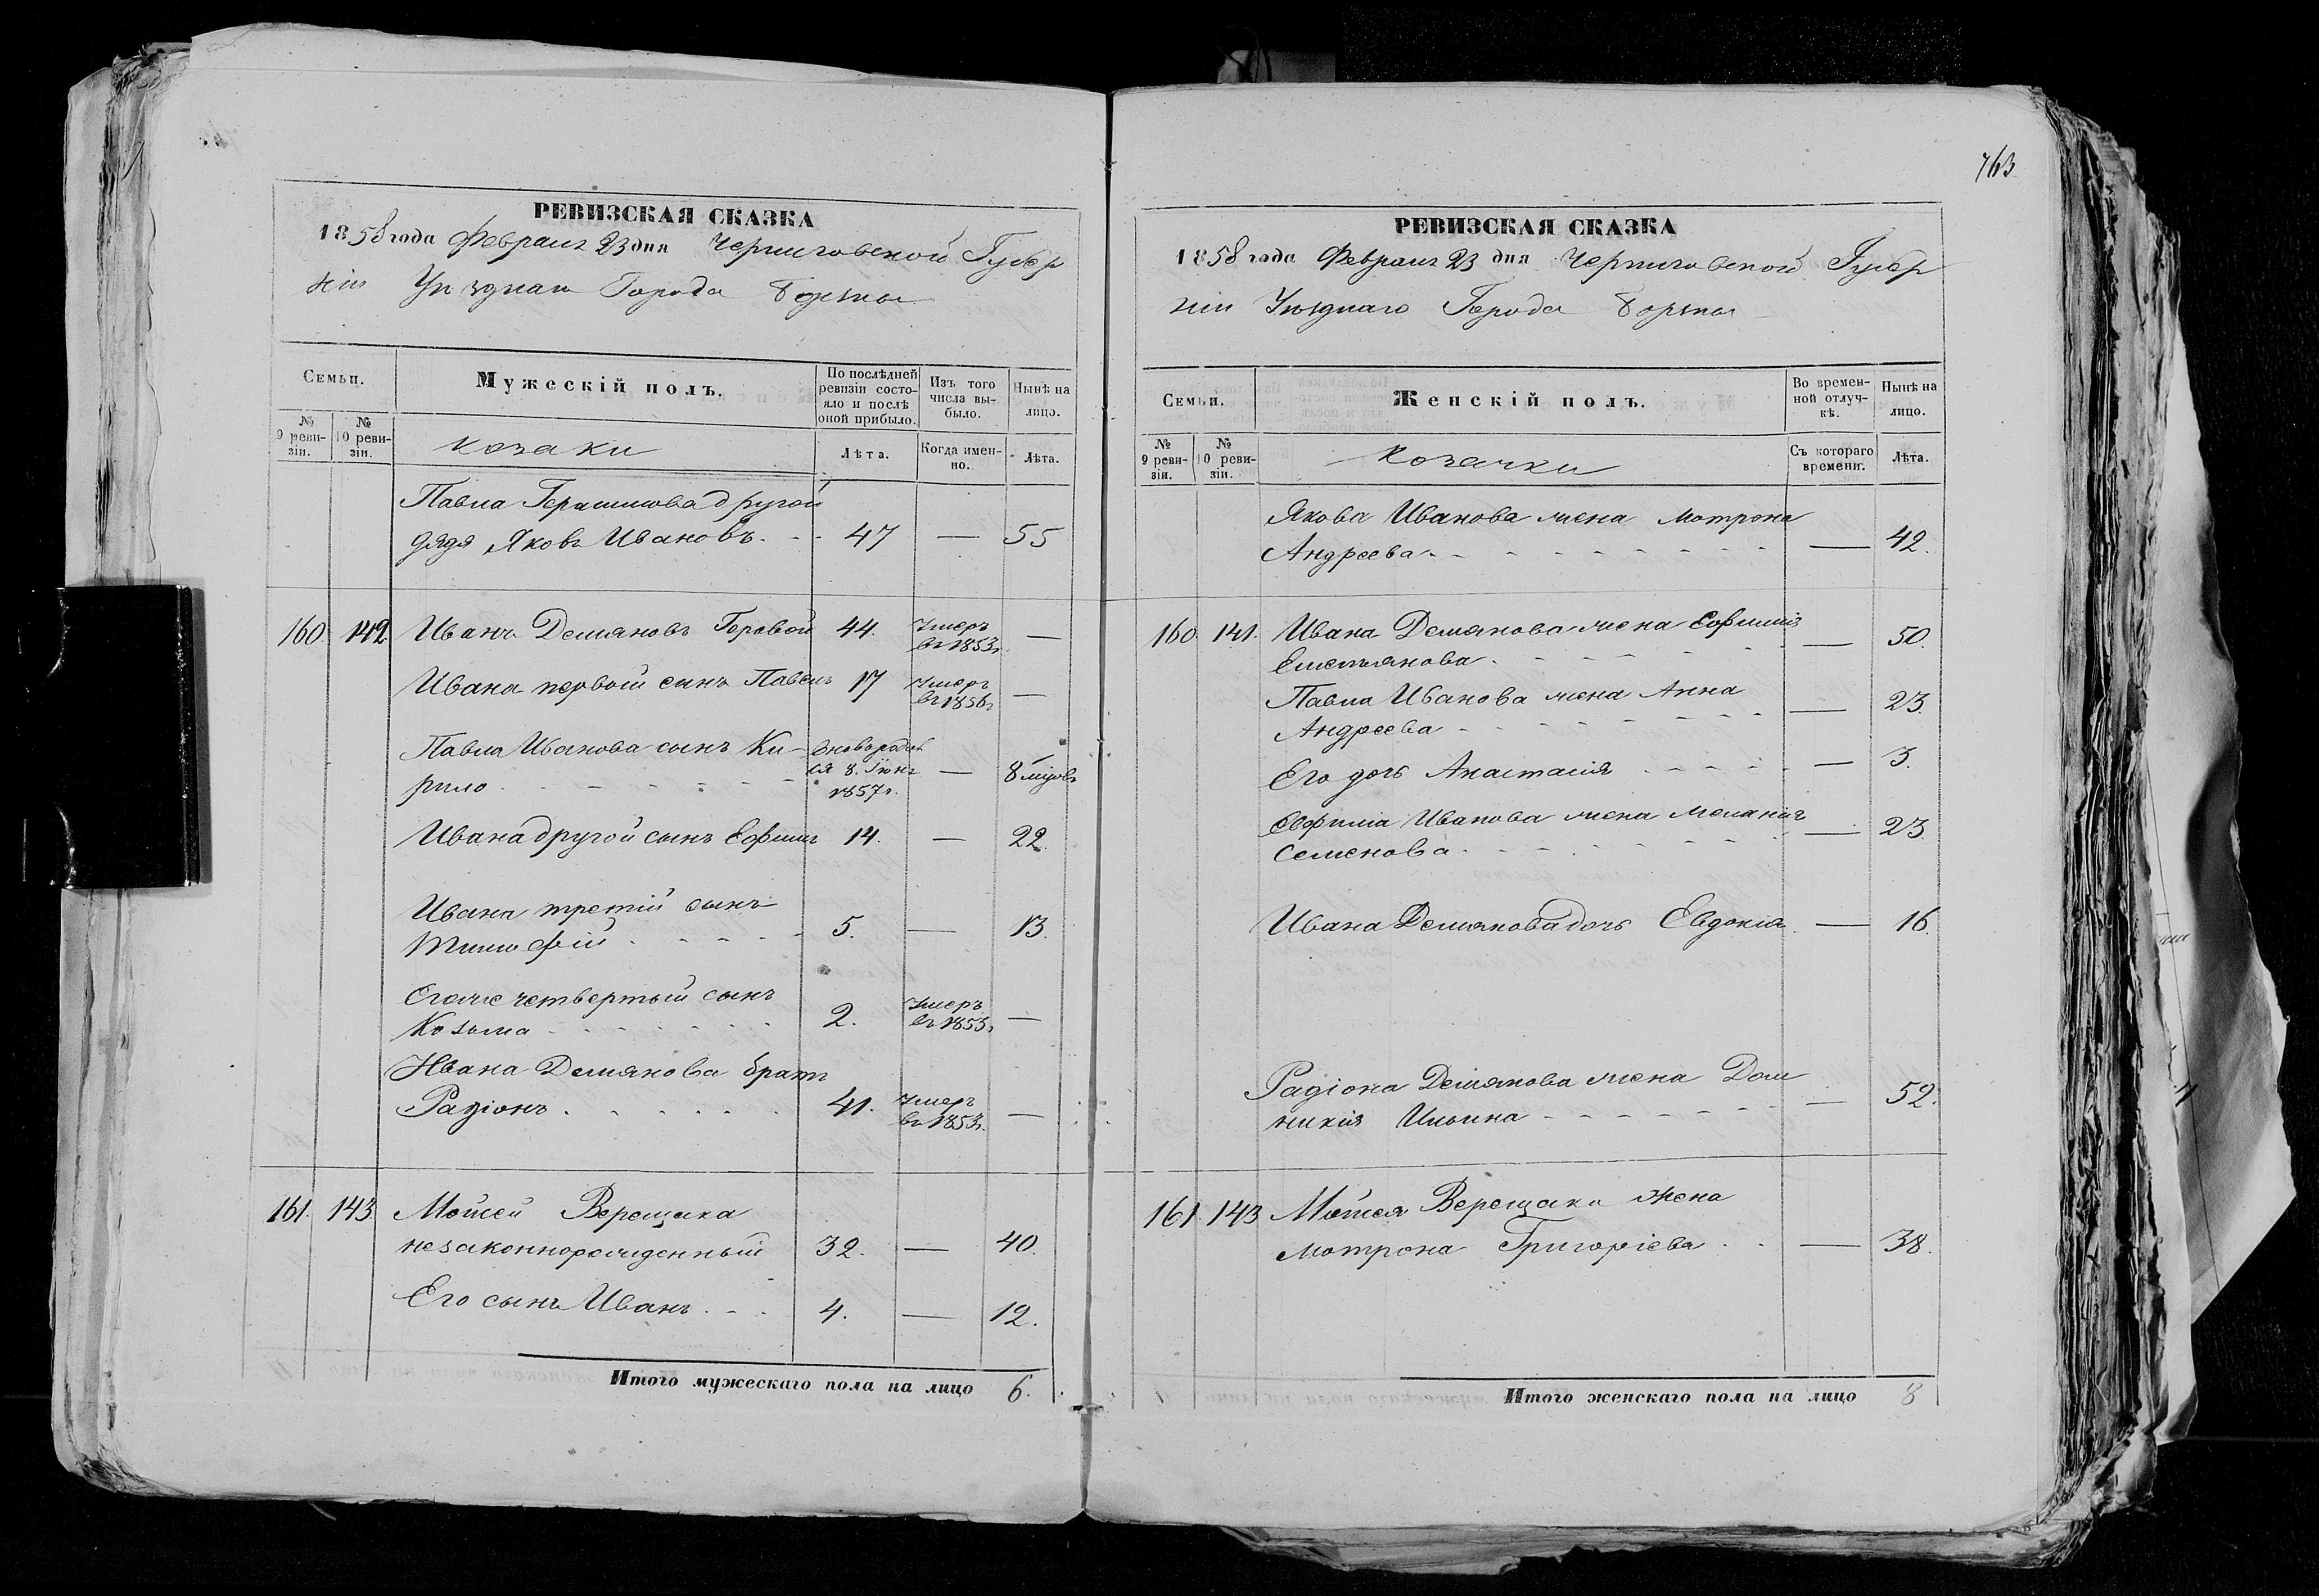 763
РЕВИЗСКАЯ СКАЗКА
1858 года Февраля 23 дня Черниговской Губер
ніи Уѣзднаго Города Борзны
Семьи.
Мужескій полъ.
По послѣдней ревизіи состояло и послѣ оной прибыло.
Изъ того числа выбыло.
Нынѣ на лицо.
№ 9 ревизіи.
№ 10 ревизіи.
козаки
Лѣта.
Когда именно.
Лѣта.
Павла Герасимова другой
дядя Яковъ Ивановъ. 47 — 55
160. 142 Иванъ Демяновъ Геровой 44. Умеръ въ 1853г. —
Ивана первой сынъ Павелъ 17 Умеръ въ 1856г —
Павла Иванова сынъ Ки-
рило вновь родился 8. Іюня 1857г. — 8 міцовъ
Ивана другой сынъ Ефимъ 14. — 22.
Ивана третій сынъ
Тимофій 5. — 13.
Егоже четвертый сынъ
Козьма 2. Умеръ въ 1853г —
Ивана Демянова братъ
Радіонъ 41. Умеръ въ 1853г. —
161. 143 Мойсей Верещака
незаконнорожденный 32. — 40.
Его сынъ Иванъ 4. — 12.
Итого мужескаго пола на лицо 6.
РЕВИЗСКАЯ СКАЗКА
1858 года Февраля 23 дня Черниговской Губер
ніи Уѣзднаго Города Борзны
Семьи.
Женскій полъ.
Во временной отлучкѣ.
Нынѣ на лицо.
№ 9 ревизіи.
№ 10 ревизіи.
козачки
Съ котораго времени.
Лѣта.
Якова Иванова жена Мотрона
Андреева — 42.
160. 141. Ивана Демянова жена Ефимія
Емельянова — 50.
Павла Иванова жена Анна
Андреева — 23.
Его дочь Анастасія — 3.
Евфиміа Иванова жена Меланія
Семенова — 23.
Ивана Демянова дочь Евдокія — 16.
Радіона Демянова жена Дом
никія Ильина — 52.
161 143 Мойсея Верещаки жена
Мотрона Григоріева — 38.
Итого женскаго пола на лицо 8